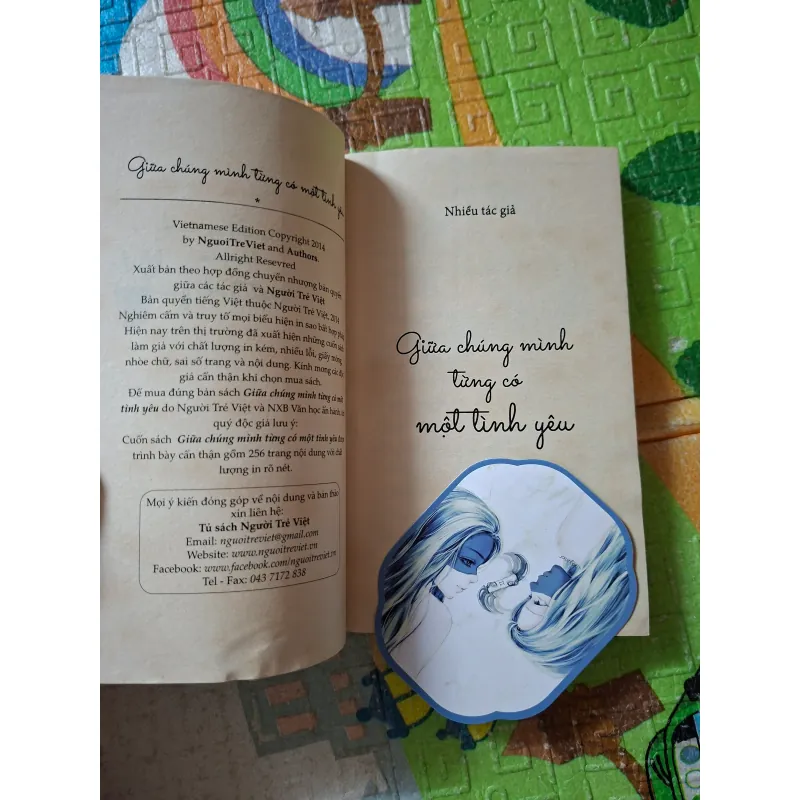 Giữa chúng mình từng có một tình yêu
*
Vietnamese Edition Copyright 2014
by NguoiTreViet and Authors.
Allright Resevred
Xuất bản theo hợp đồng chuyển nhượng bản quyền
giữa các tác giả và Người Trẻ Việt
Bản quyền tiếng Việt thuộc Người Trẻ Việt, 2014
Nghiêm cấm và truy tố mọi biểu hiện in sao bất hợp pháp
Hiện nay trên thị trường đã xuất hiện những cuốn sách
làm giả với chất lượng in kém, nhiều lỗi, giấy mỏng
nhòe chữ, sai số trang và nội dung. Kính mong các độc
giả cẩn thận khi chọn mua sách.
Để mua đúng bản sách Giữa chúng mình từng có một
tình yêu do Người Trẻ Việt và NXB Văn học ấn hành,
quý độc giả lưu ý:
Cuốn sách Giữa chúng mình từng có một tình yêu được
trình bày cẩn thận gồm 256 trang nội dung với chất
lượng in rõ nét.
Mọi ý kiến đóng góp về nội dung và bản thảo
xin liên hệ:
Tủ sách Người Trẻ Việt
Email: nguoitreviet@gmail.com
Website: www.nguoitreviet.vn
Facebook: www.facebook.com/nguoitreviet.vn
Tel - Fax: 043 7172 838
Nhiều tác giả
Giữa chúng mình
từng có
một tình yêu